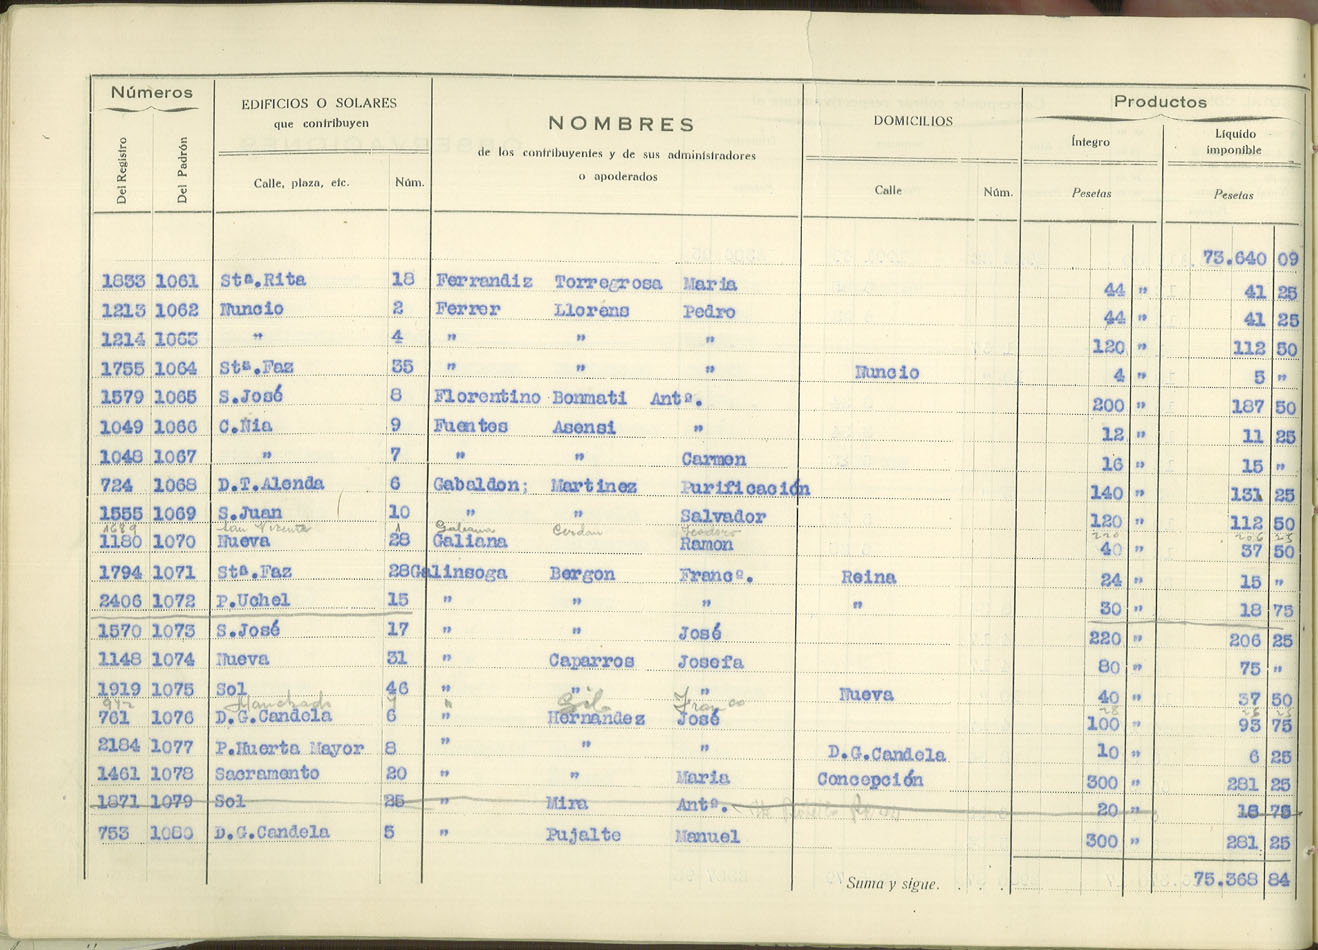 Números
EDIFICIOS O SOLARES
que contribuyen
NOMBRES
de los contribuyentes y de sus administradores
o apoderados
DOMICILIOS
Productos
Del Registro
Del Padrón
Calle, plaza, etc.
Núm.
Calle
Núm.
Íntegro
Pesetas
Líquido
imponible
Pesetas
73.640 09
1833 1061 Stª.Rita 18 Ferrandiz Torregrosa Maria 44 " 41 25
1213 1062 Nuncio 2 Ferrer Lloréns Pedro 44 " 41 25
1214 1063 " 4 " " " 120 " 112 50
1755 1064 Stª.Faz 35 " " " Nuncio 4 " 5 "
1579 1065 S.José 8 Florentino Bonmati Antº. 200 " 187 50
1049 1066 C.Ñia 9 Fuentes Asensi " 12 " 11 25
1048 1067 " 7 " " Carmen 16 " 15 "
724 1068 D.T.Alenda 6 Gabaldon; Martinez Purificación 140 " 131 25
1555 1069 S.Juan 10 " " Salvador 120 " 112 50
1689 San Vicente 1 Galiana Cerdan Teodoro 220 206 25
1180 1070 Nueva 28 Galiana Ramon 40 " 37 50
1794 1071 Stª.Faz 28 Galinsoga Bergon Francº. Reina 24 " 15 "
2406 1072 P.Uchel 15 " " " " 30 " 18 75
1570 1073 S.José 17 " " José 220 " 206 25
1148 1074 Nueva 31 " Caparros Josefa 80 " 75 "
1919 1075 Sol 46 " " " Nueva 40 " 37 50
942 " Gil Franco 28 26 25
761 1076 D.G.Candela 6 " Hernandez José 100 " 93 75
2184 1077 P.Huerta Mayor 8 " " " D.G.Candela 10 " 6 25
1461 1078 Sacramento 20 " " Maria Concepción 300 " 281 25
1871 1079 Sol 25 " Mira Antº. 20 " 18 75
753 1080 D.G.Candela 5 " Pujalte Manuel 300 " 281 25
Suma y sigue. . . . 75.368 84